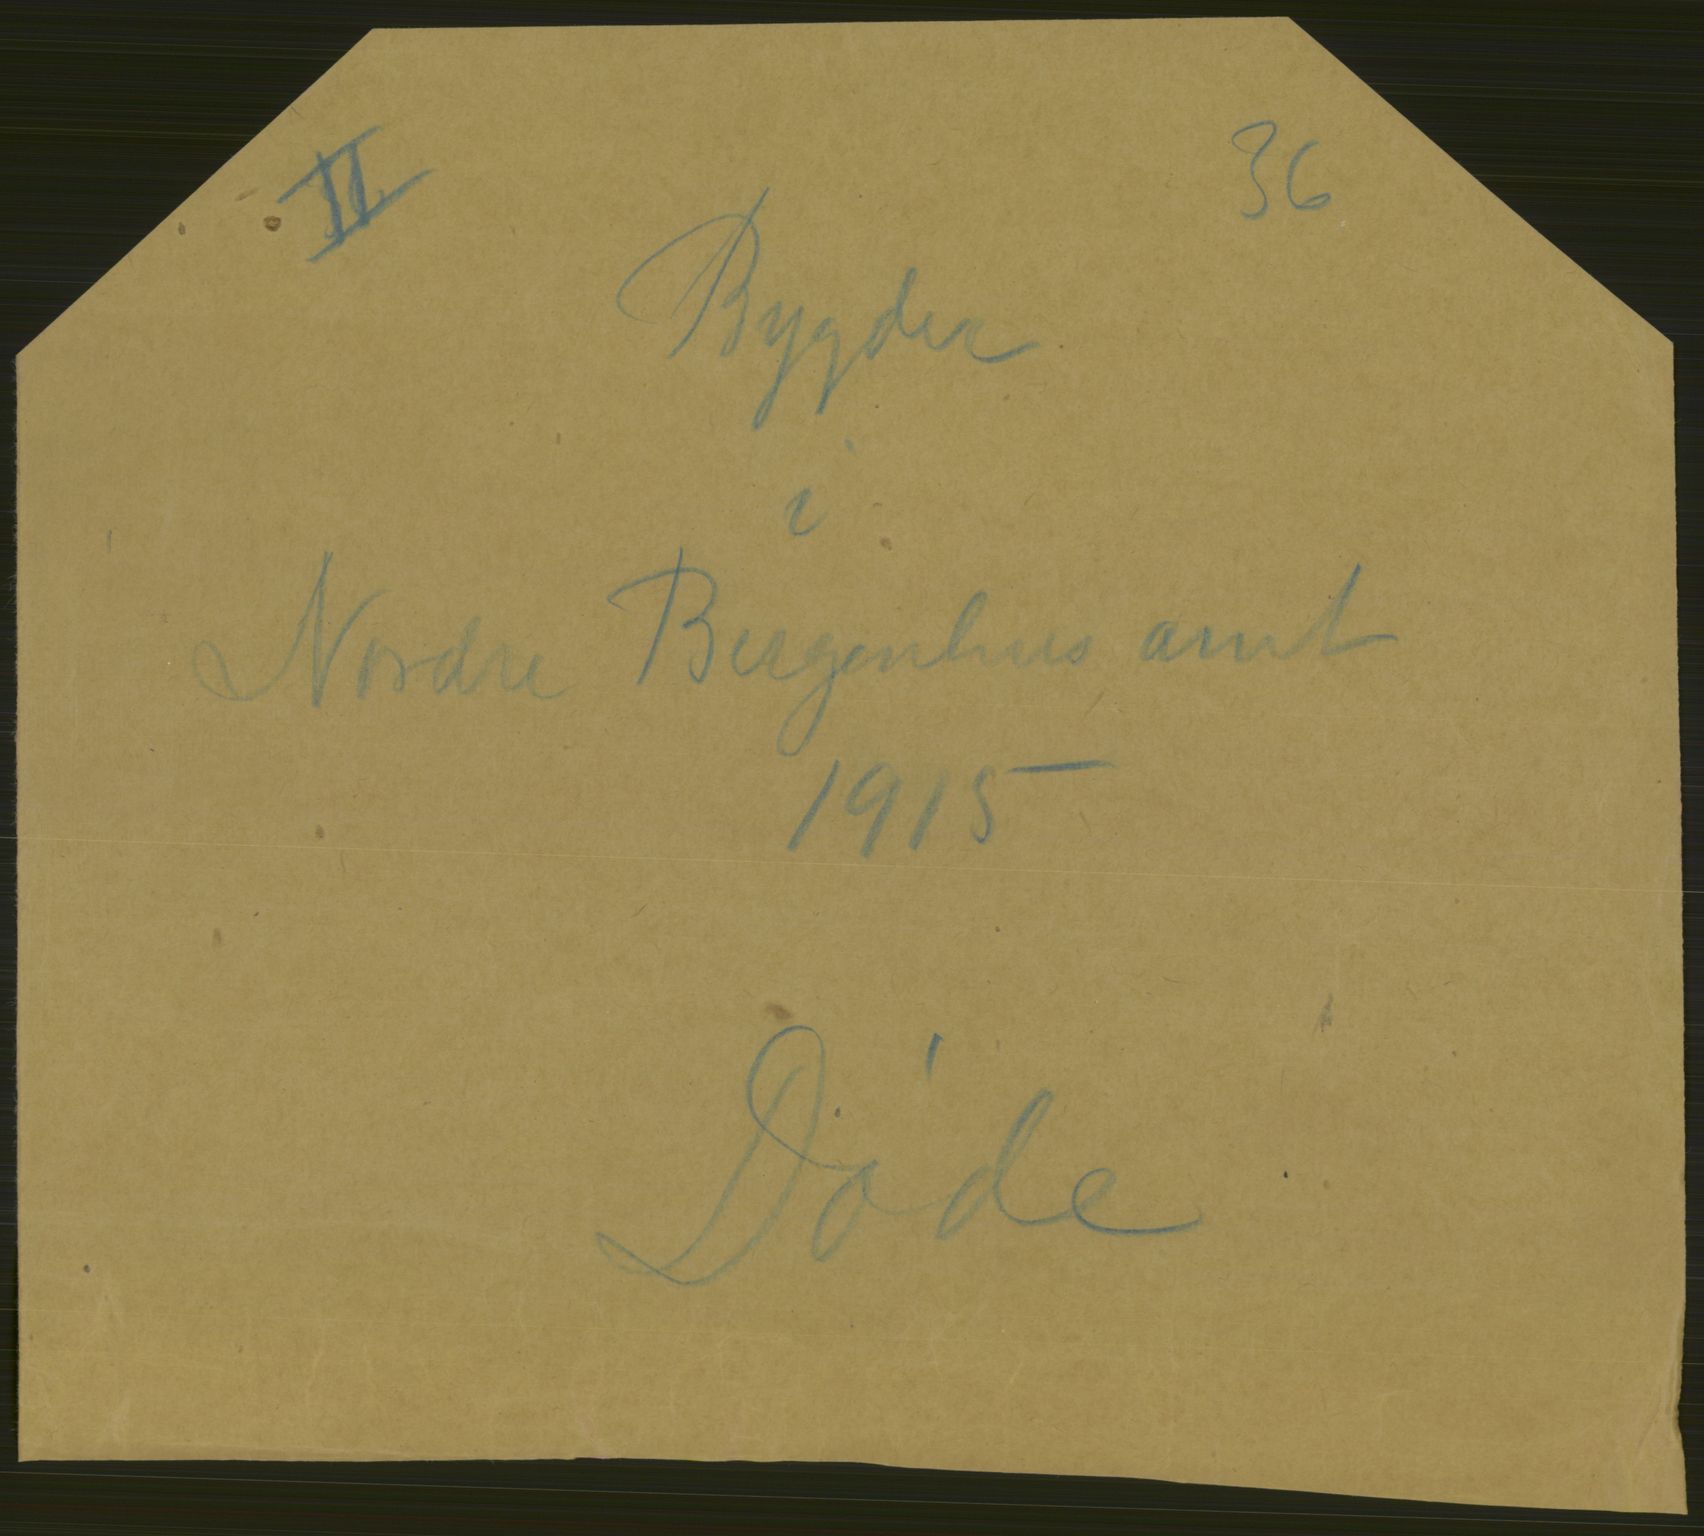 II
36
Bygder
i
Nordre Bergenhus amt
1915
Døde